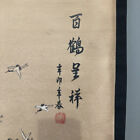 百鹤呈祥
辛卯年春